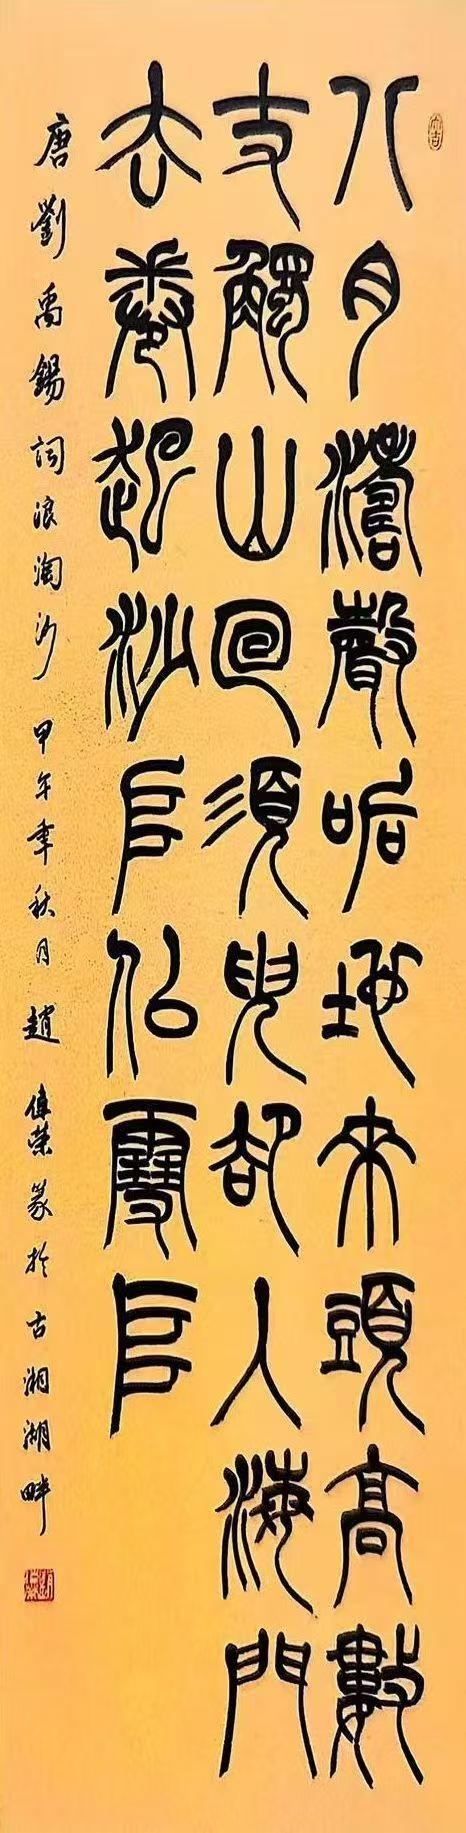 八月濤聲吼地來頭高數
丈觸山回須臾卻入海門
去卷起沙堆似雪堆
唐劉禹錫詞浪淘沙 甲午年秋月 趙榮篆於古湘湖畔